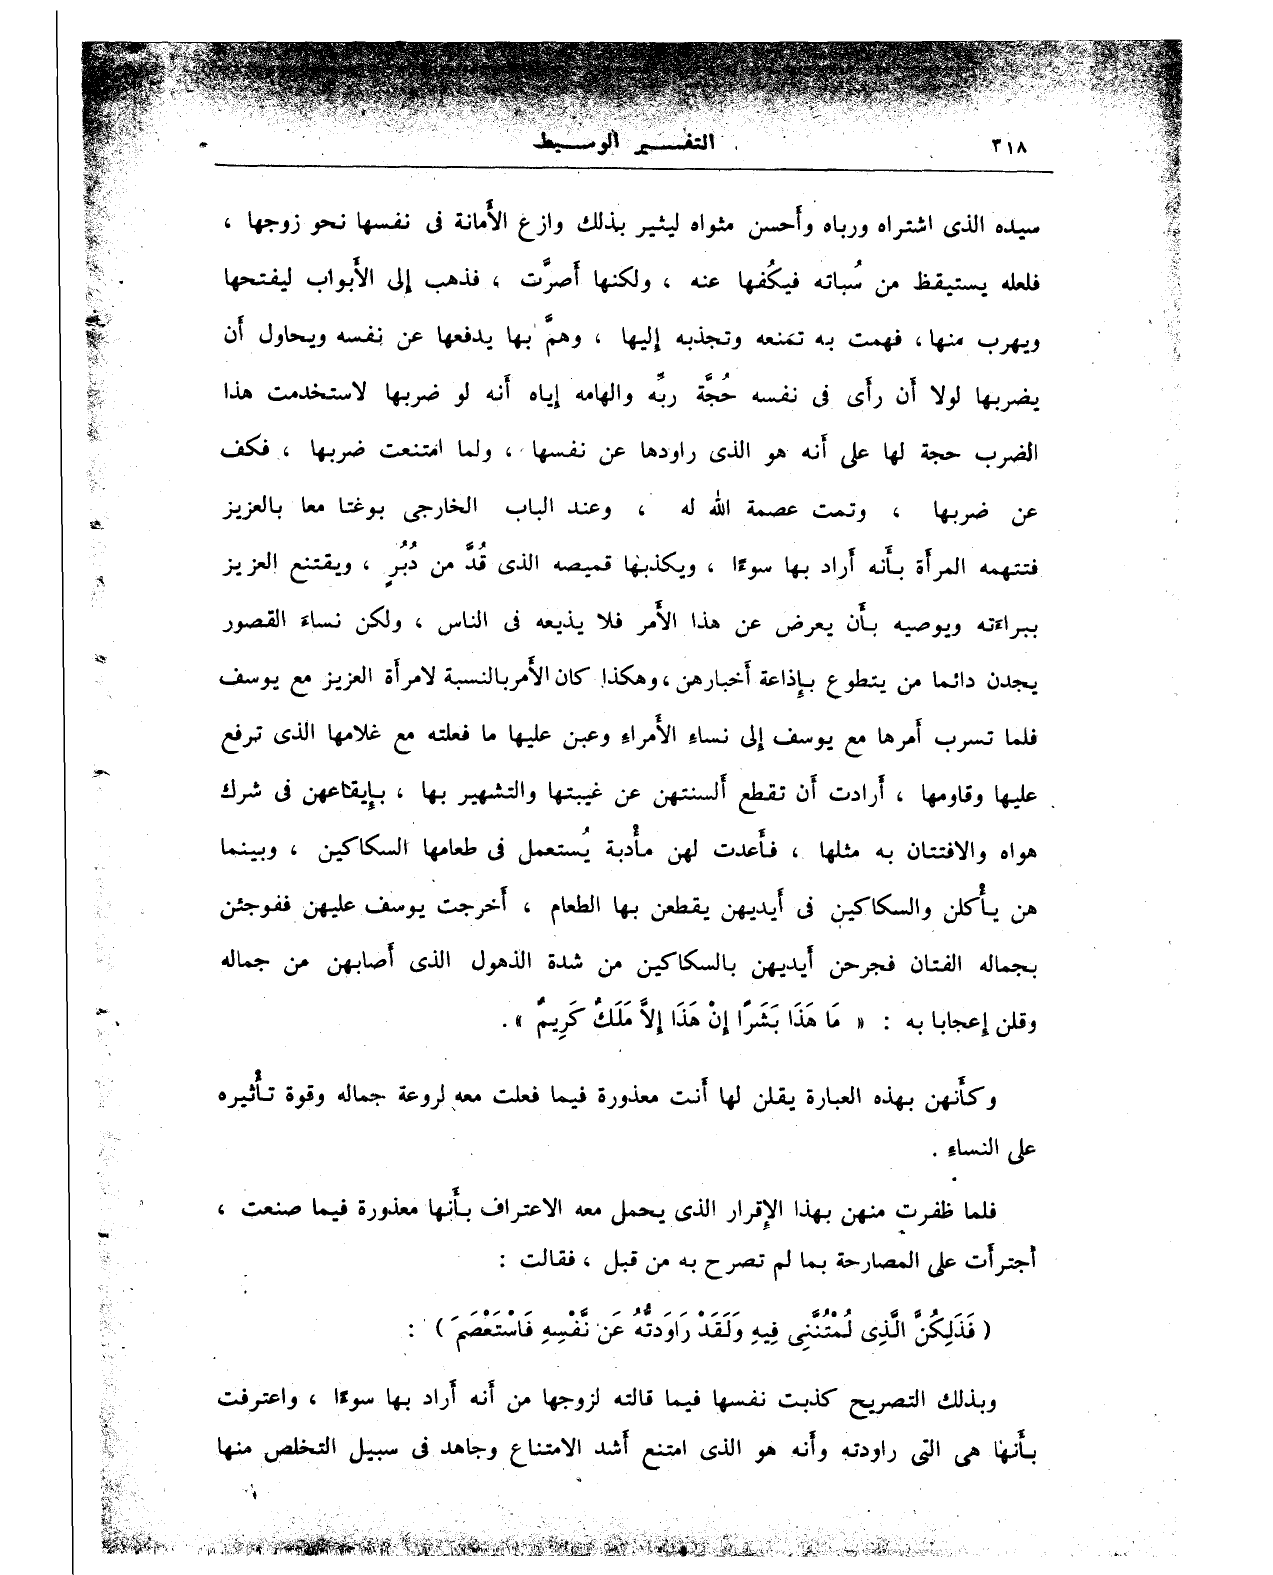 ٣١٨
التفسير الوسيط
سيده الذى اشتراه ورباه وأحسن مثواه ليثير بذلك وازع الأمانة فى نفسها نحو زوجها ،
فلعله يستيقظ من سُباته فيكُفها عنه ، ولكنها أصرَّت ، فذهب إلى الأبواب ليفتحها
ويهرب منها، فهمت به تمنعه وتجذبه إليها ، وهمَّ بها يدفعها عن نفسه ويحاول أن
يضربها لولا أن رأى فى نفسه حُجَّة ربِّه والهامه إياه أنه لو ضربها لاستخدمت هذا
الضرب حجة لها على أنه هو الذى راودها عن نفسها ، ولما امتنعت ضربها ، فكف
عن ضربها ، وتمت عصمة الله له ، وعند الباب الخارجى بوغتا معا بالعزيز
فتتهمه المرأة بأنه أراد بها سوءًا ، ويكذبها قميصه الذى قُدَّ من دُبُرٍ ، ويقتنع العزيز
ببراءته ويوصيه بأن يعرض عن هذا الأمر فلا يذيعه فى الناس ، ولكن نساءَ القصور
يجدن دائما من يتطوع بإذاعة أخبارهن ، وهكذا كان الأمر بالنسبة لامرأة العزيز مع يوسف
فلما تسرب أمرها مع يوسف إلى نساء الأمراءِ وعبن عليها ما فعلته مع غلامها الذى ترفع
عليها وقاومها ، أرادت أن تقطع ألسنتهن عن غيبتها والتشهير بها ، بإيقاعهن فى شرك
هواه والافتتان به مثلها ، فأعدت لهن مأْدبة يُستعمل فى طعامها السكاكين ، وبينما
هن يأْكلن والسكاكين فى أيديهن يقطعن بها الطعام ، أخرجت يوسف عليهن ففوجئن
بجماله الفتان فجرحن أيديهن بالسكاكين من شدة الذهول الذى أصابهن من جماله
وقلن إعجابا به : « مَا هَذَا بَشَرًا إِنْ هَذَا إِلاَّ مَلَكٌ كَرِيمٌ ».
وكأنهن بهذه العبارة يقلن لها أنت معذورة فيما فعلت معه لروعة جماله وقوة تأْثيره
على النساءِ .
فلما ظفرت منهن بهذا الإقرار الذى يحمل معه الاعتراف بأنها معذورة فيما صنعت ،
أجترأت على المصارحة بما لم تصرح به من قبل ، فقالت :
( فَذَلِكُنَّ الَّذِى لُمْتُنَّنِى فِيهِ وَلَقَدْ رَاوَدتُّهُ عَن نَّفْسِهِ فَاسْتَعْصَمَ ) :
وبذلك التصريح كذبت نفسها فيما قالته لزوجها من أنه أراد بها سوءًا ، واعترفت
بأنها هى التى راودته وأنه هو الذى امتنع أشد الامتناع وجاهد فى سبيل التخلص منها